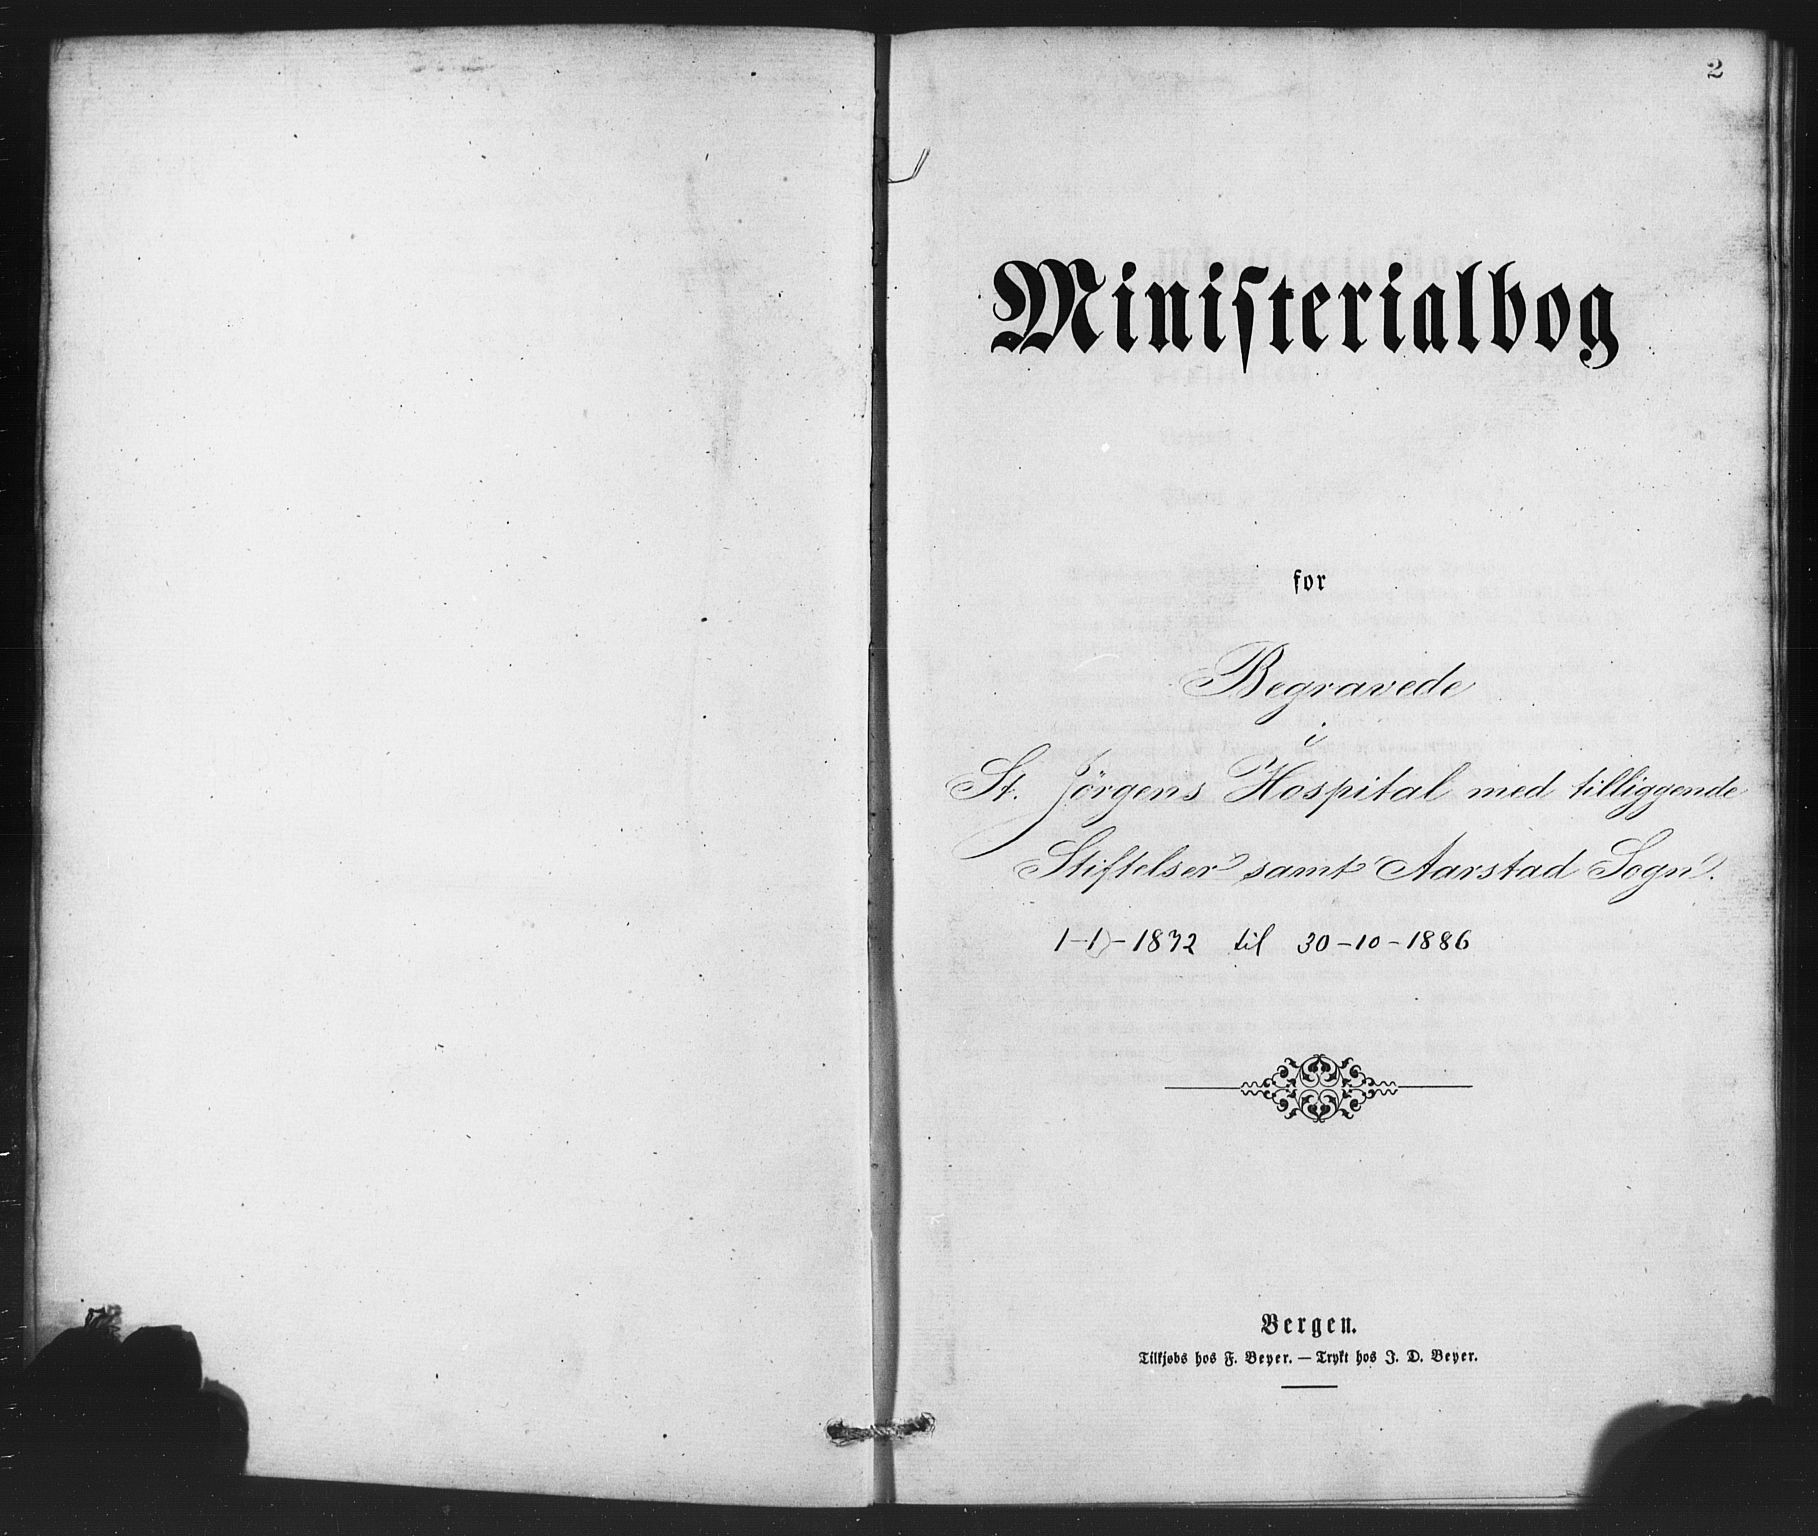 2
Ministerialbog
for
Begravede
i
St. Jörgens Hospital med tilliggende
Stiftelser samt Aarstad Sogn.
1-1-1872 til 30-10-1886
Bergen.
Tilkjøbs hos F. Beyer. — Trykt hos J. D. Beyer.